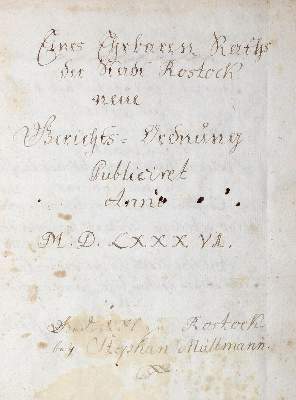 Eines Ehrbaren Raths
der Stadt Rostock
neue
Gerichts = Ordnung
Publiciret
Anno
M. D. LXXX VI.
Rostock
bey Stephan Müllmann.